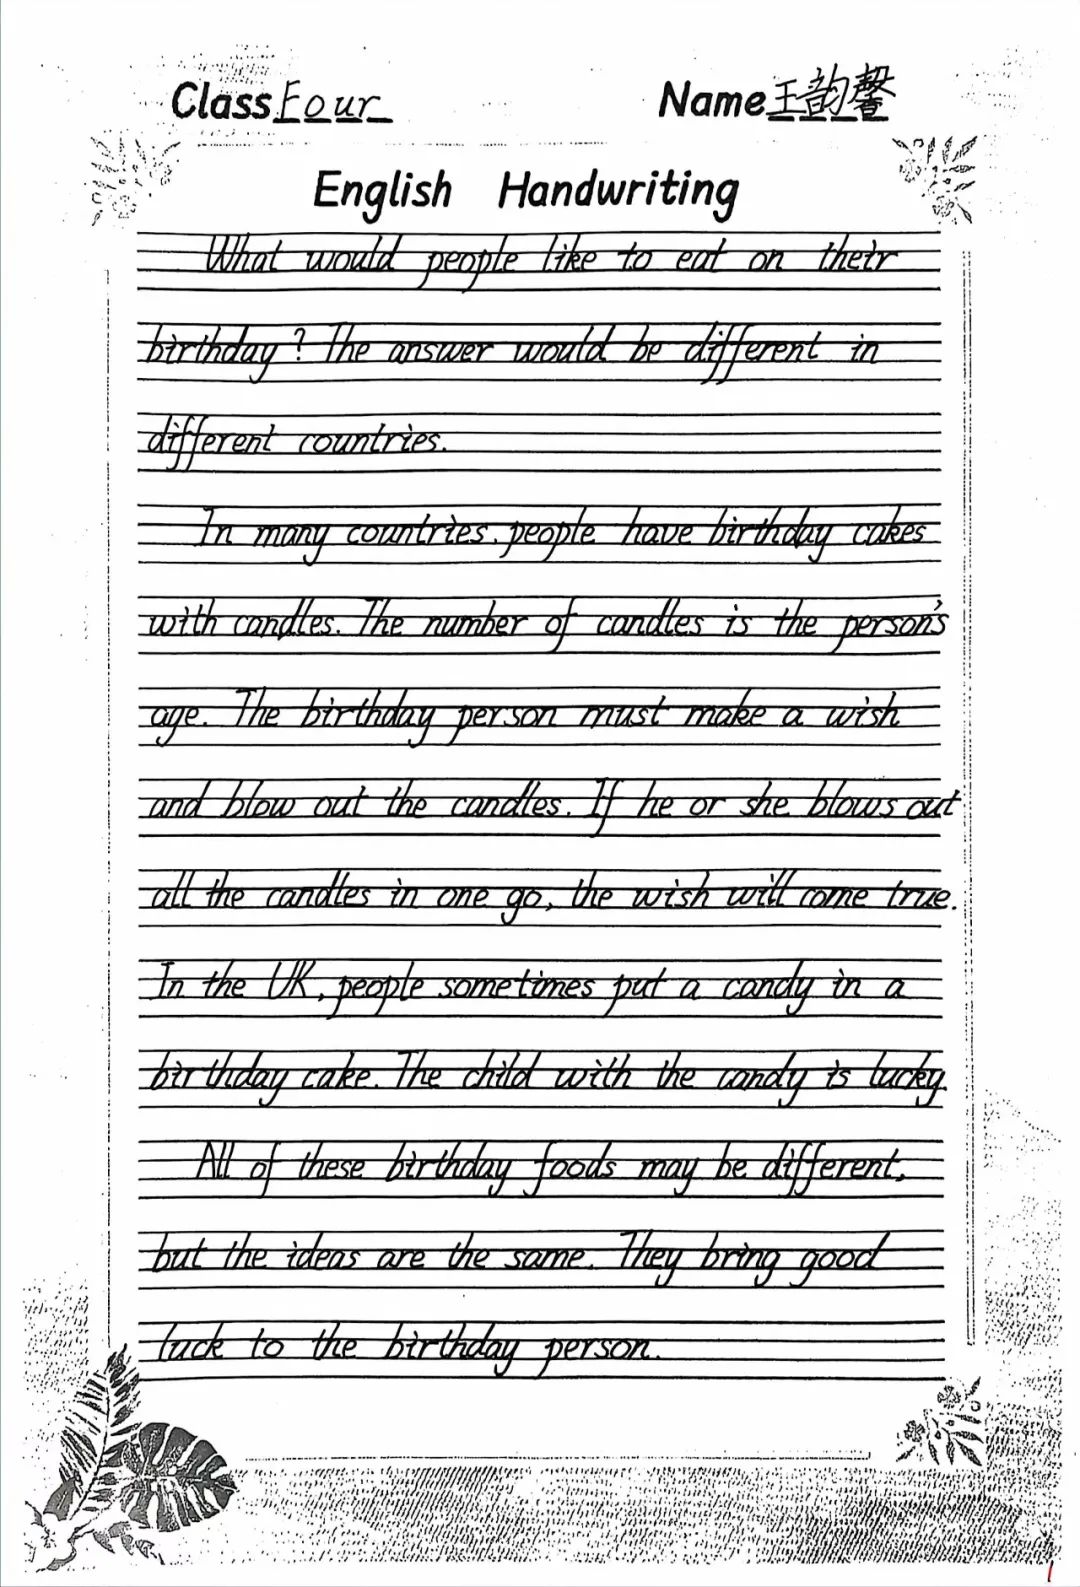 Class Four Name 王韵馨
English Handwriting
What would people like to eat on their
birthday? The answer would be different in
different countries.
In many countries, people have birthday cakes
with candles. The number of candles is the person's
age. The birthday person must make a wish
and blow out the candles. If he or she blows out
all the candles in one go, the wish will come true.
In the UK, people sometimes put a candy in a
birthday cake. The child with the candy is lucky.
All of these birthday foods may be different,
but the ideas are the same. They bring good
luck to the birthday person.